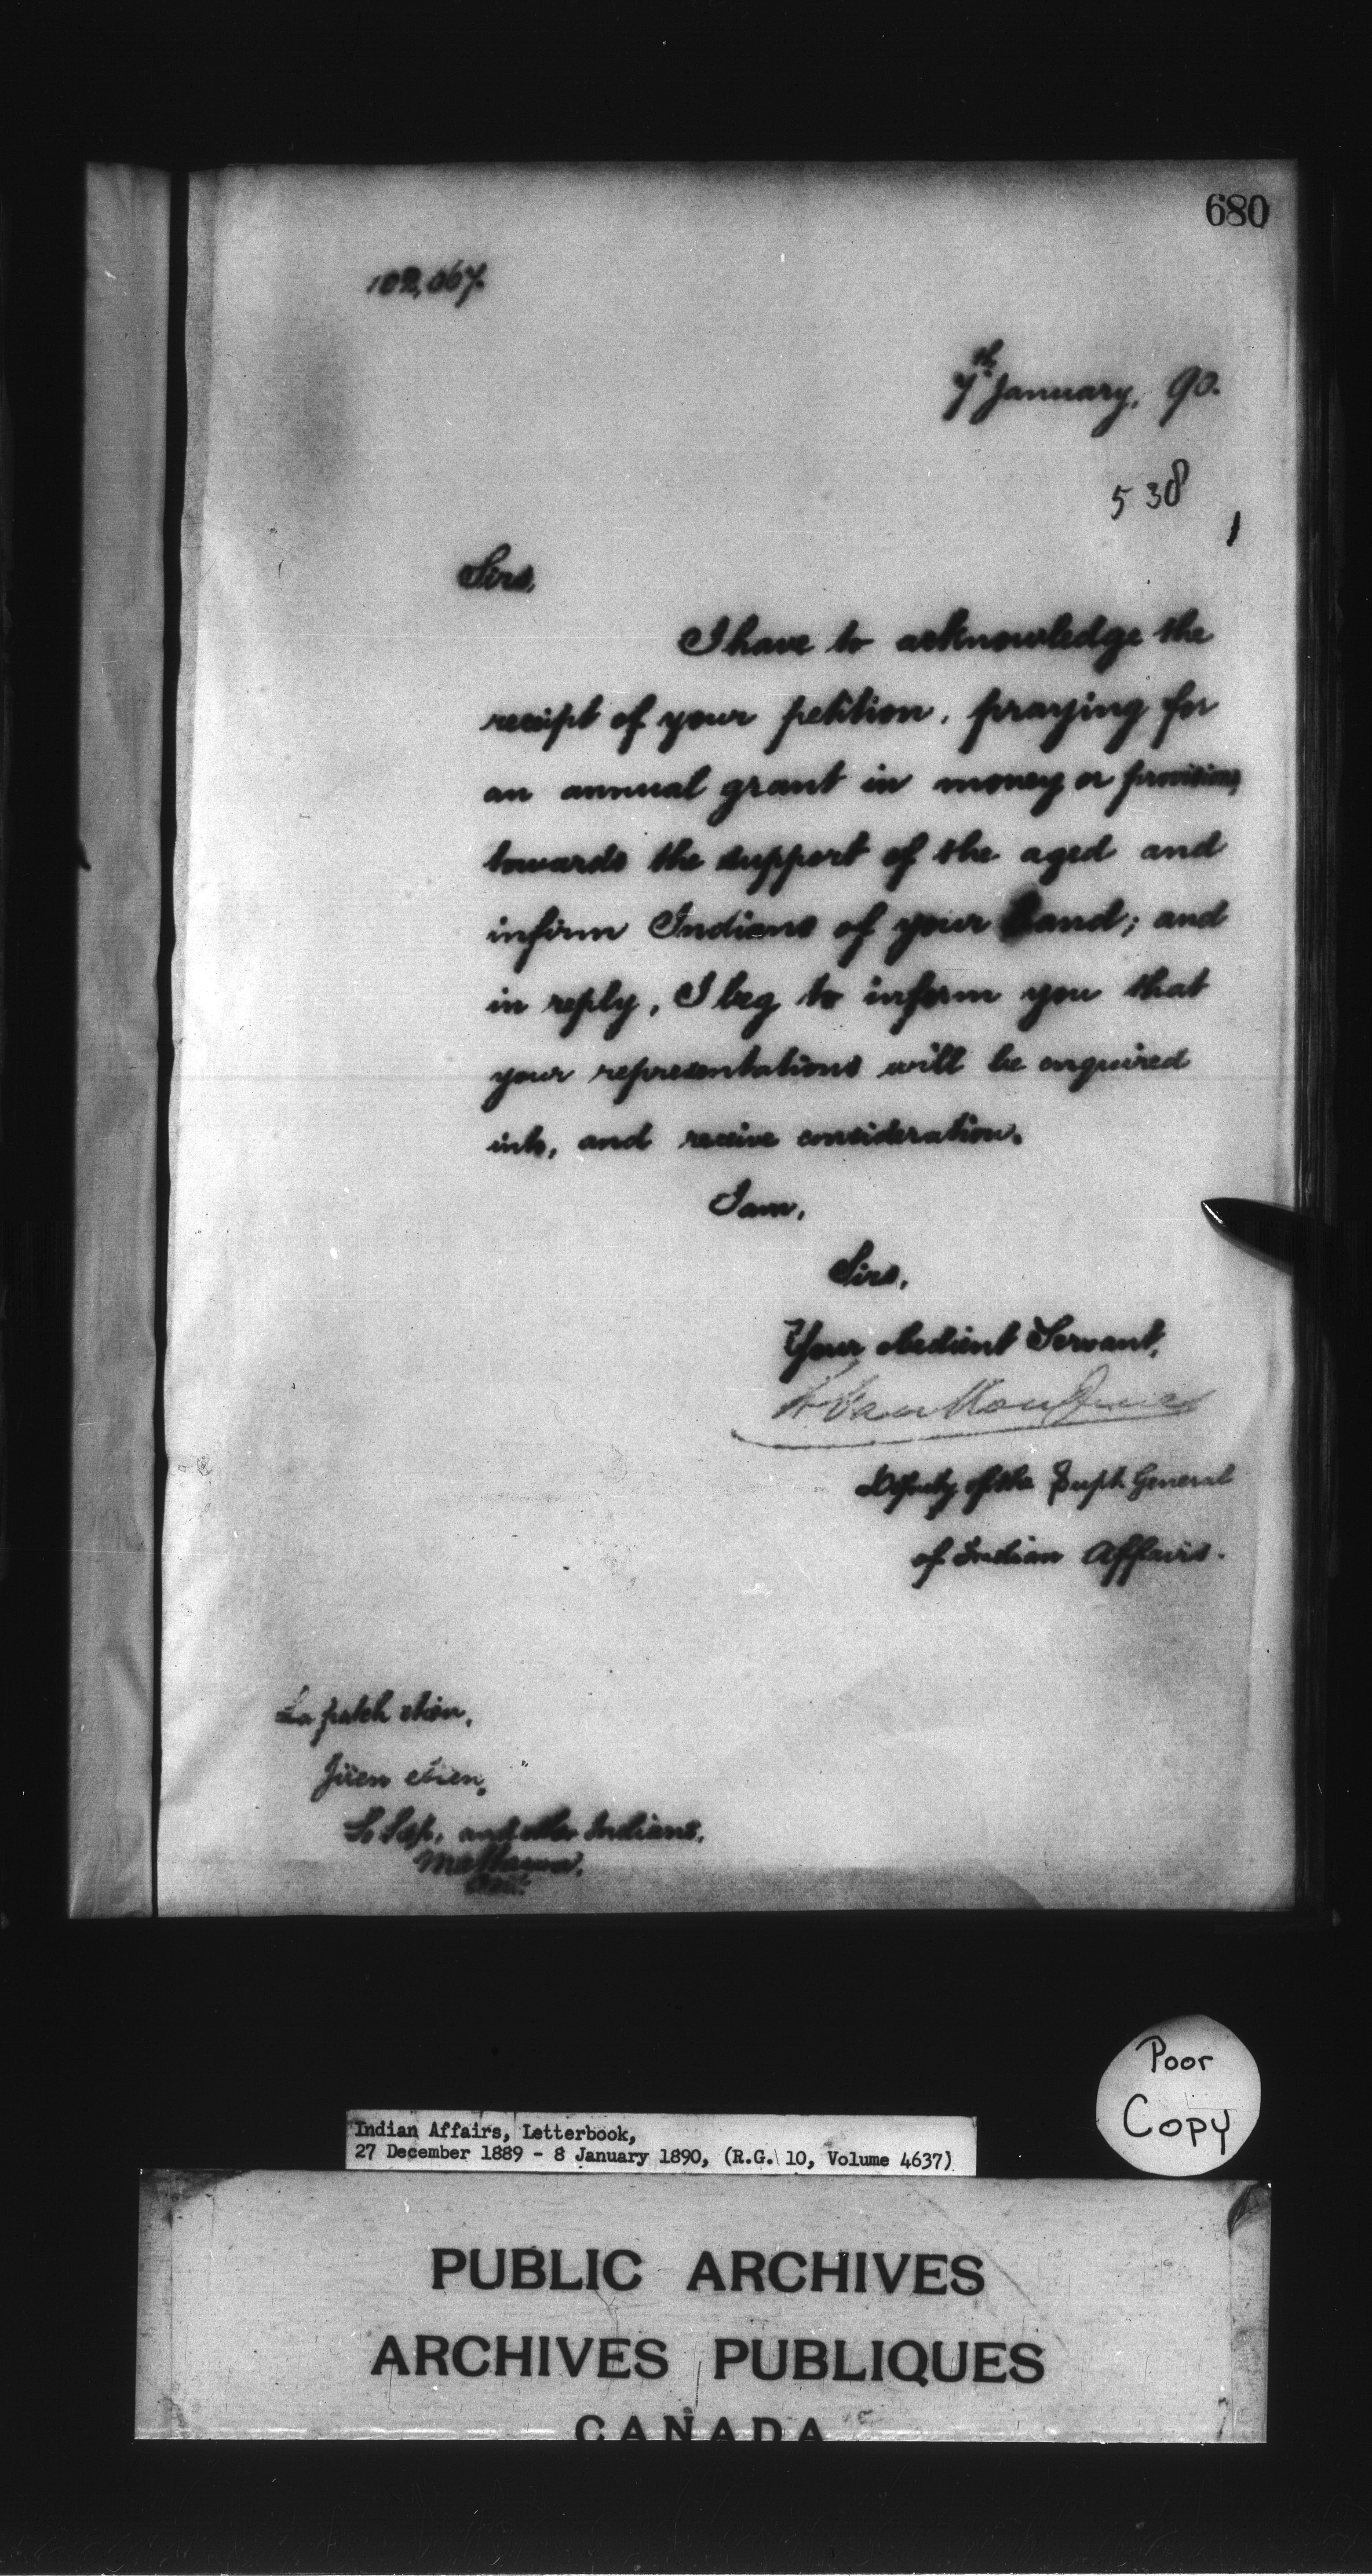 680
102,067.
7th January, 90.
538
Sirs,
I have to acknowledge the
receipt of your petition, praying for
an annual grant in money or provisions,
towards the support of the aged and
infirm Indians of your Band; and
in reply, I beg to inform you that
your representations will be enquired
into, and receive consideration.
I am,
Sirs,
Your obedient Servant,
L. VanKoughnet
Deputy of the Supt. General
of Indian Affairs.
La
So Sop, and other Indians,
Mattawa,
Ont.
Poor
Copy
Indian Affairs, Letterbook,
27 December 1889 - 8 January 1890, (R.G. 10, Volume 4637)
PUBLIC ARCHIVES
ARCHIVES PUBLIQUES
CANADA